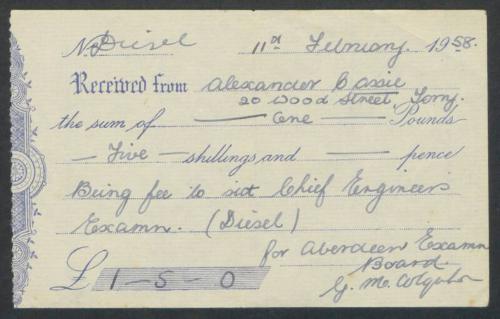 No Diesel 11th February. 1958.
Received from Alexander Bassie
20 Wood Street, Torry.
the sum of — One — Pounds
— Five — shillings and — pence
Being fee to sit Chief Engineers
Examn. (Diesel)
for Aberdeen Examn
Board.
£ 1 - 5 - 0
G. Mc